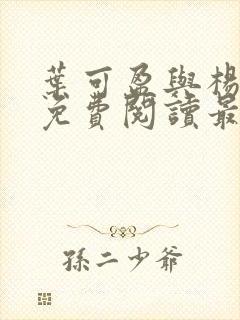 葉可盈與楊
免費閱讀最
孫二少爺